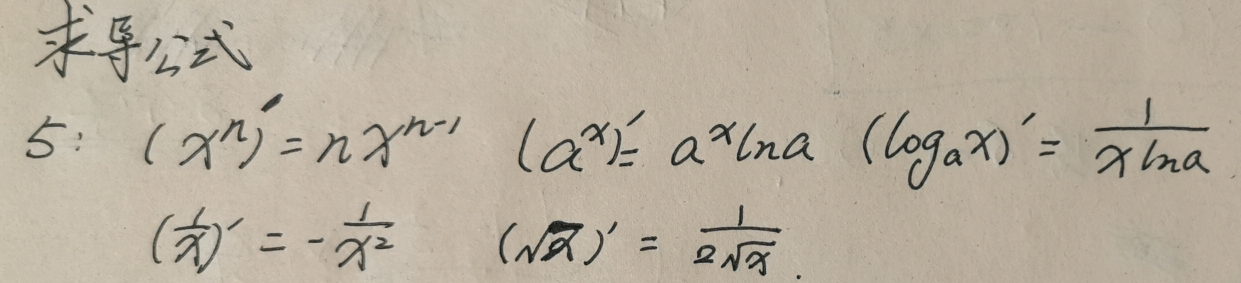 求导公式
5: (xⁿ)′ = nxⁿ⁻¹ (aˣ)′ = aˣlna (logₐx)′ = 1/(xlna)
(1/x)′ = -1/x² (√x)′ = 1/(2√x).